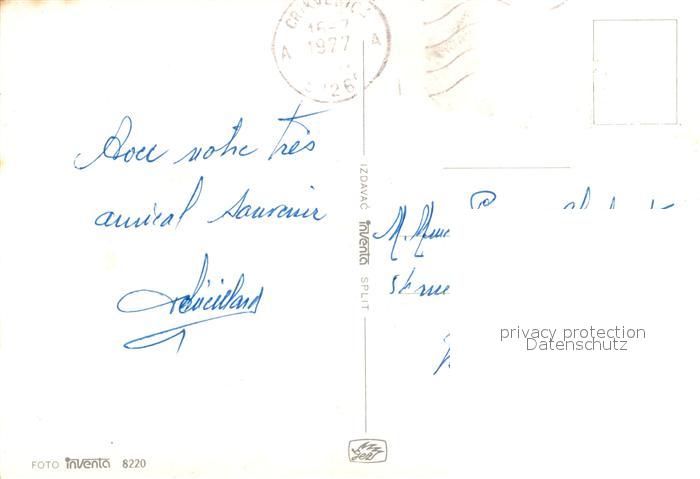 CRIKVENICA
16-7
1977
A A
Avec notre très
amical souvenir
IZDAVAČ inventa SPLIT
M. Mme
privacy protection
Datenschutz
FOTO inventa 8220